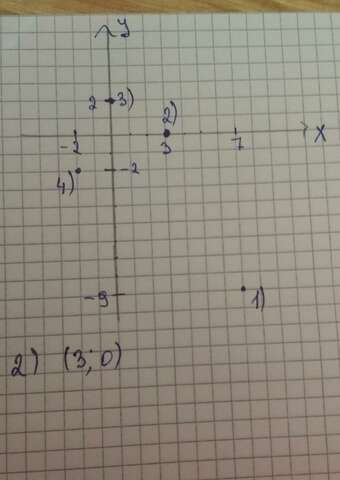 y
2 3)
2)
-2 3 7 x
4) -2
-9 1)
2) (3; 0)